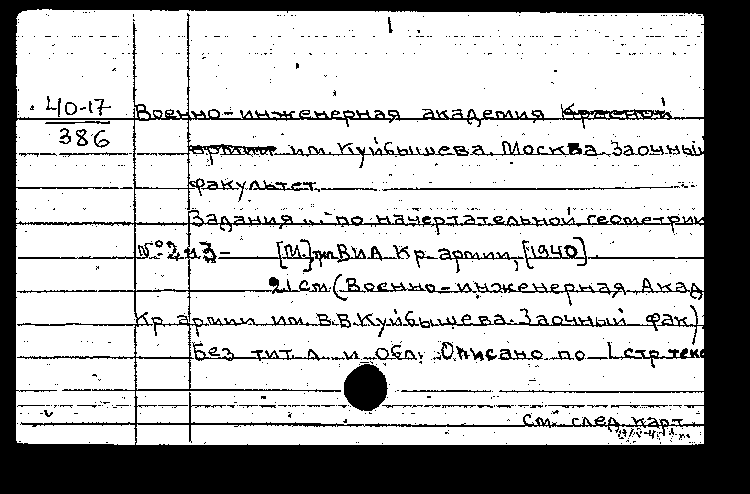 40-17
386
Военно-инженерная академия Красной
армии им. Куйбышева. Москва. Заочный
факультет.
Задания ... по начертательной геометрии
№ 2 и 3 - [М.], тип. ВИА Кр. армии, [1940].
21 см (Военно-инженерная Акад
Кр. армии им. В.В. Куйбышева. Заочный фак).
Без тит. л. и обл. Описано по 1 стр. текс
см. след. карт.